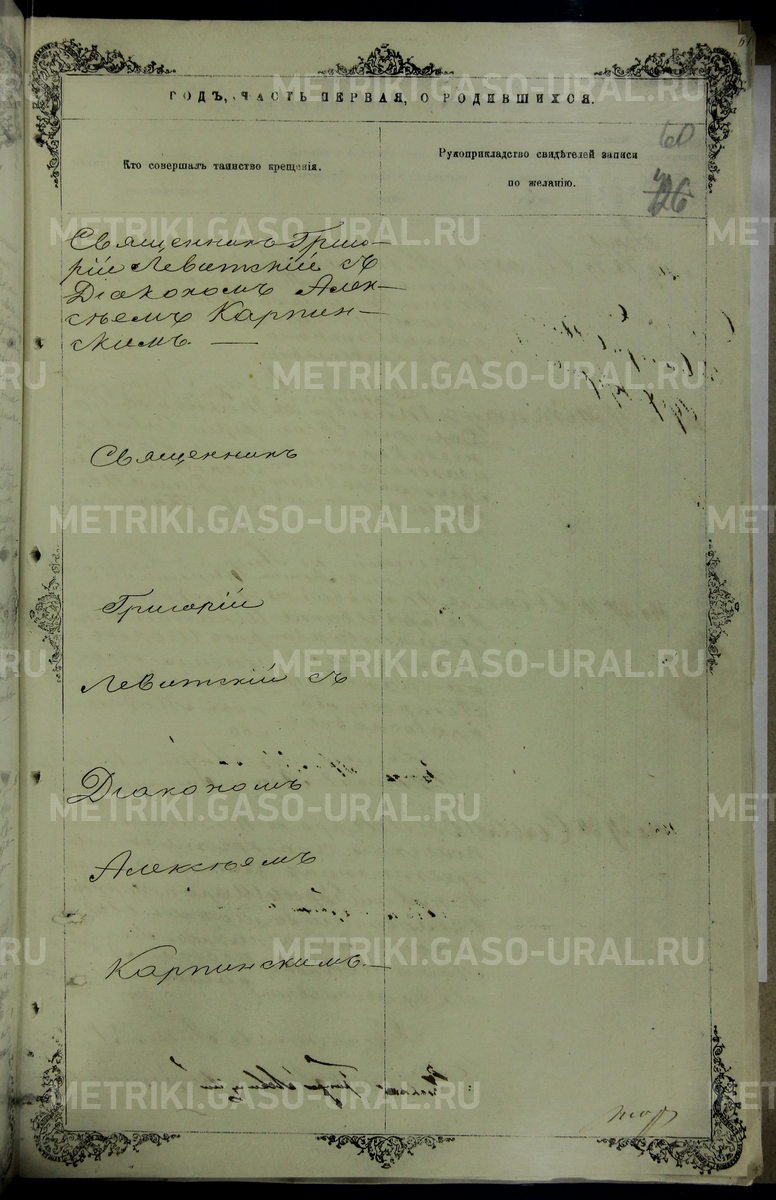 ГОДЪ, ЧАСТЬ ПЕРВАЯ, О РОДИВШИХСЯ.
60
Кто совершалъ таинство крещенія.
Рукоприкладство свидѣтелей записи
по желанію.
Священникъ Григо-
рій Левитскій съ
Діакономъ Алек-
сѣемъ Карпин-
скимъ. —
Священникъ
Григорій
Левитскій съ
Діакономъ
Алексѣемъ
Карпинскимъ. —
METRIKI.GASO-URAL.RU